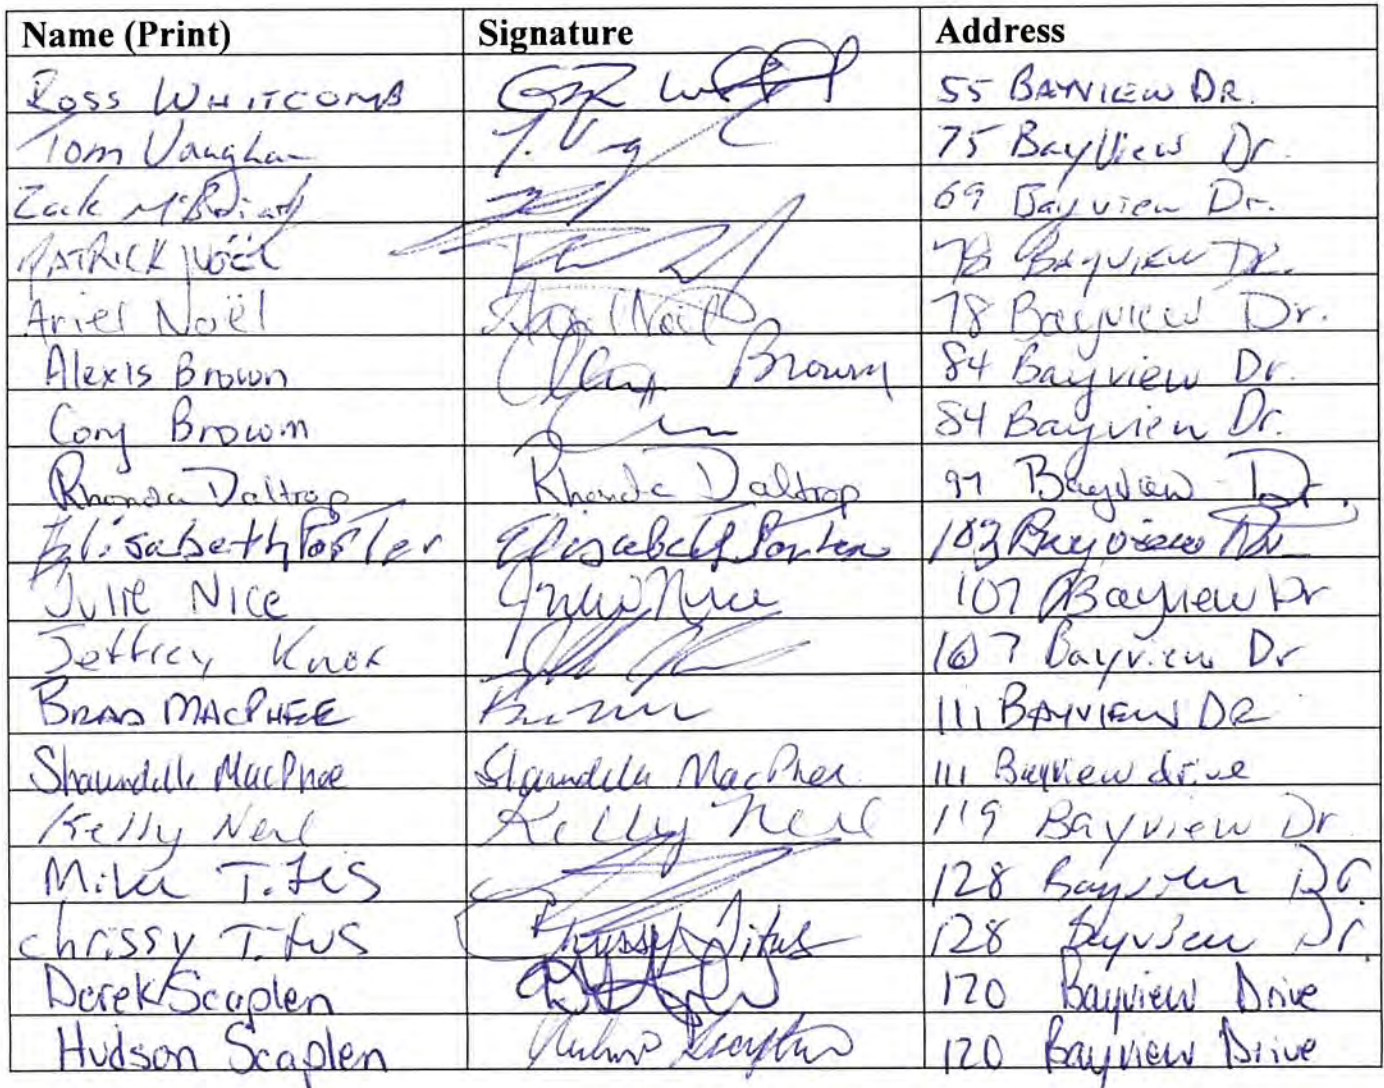 Name (Print) Signature Address
Ross WHITCOMB 55 BAYVIEW DR.
Tom Vaughan T. Vag 75 BayView Dr.
Zack 69 Bayview Dr.
PATRICK NOËL 78 BAYVIEW DR.
Ariel Noël Ariel Noël 78 Bayview Dr.
Alexis Brown Alexis Brown 84 Bayview Dr.
Cory Brown 84 Bayview Dr.
Rhonda Daltrop Rhonda Daltrop 97 Bayview Dr.
Elisabeth Porter Elisabeth Porter 103 Bayview Dr
Julie Nice Julie Nice 107 Bayview Dr
Jeffrey Knox 107 Bayview Dr
BRAD MACPHEE 111 BAYVIEW DR
Shaundelle MacPhee Shaundelle MacPhee 111 Bayview drive
Kelly Neil Kelly Neil 119 Bayview Dr
Mike Titus 128 Bayview Dr
Chrissy Titus Chrissy Titus 128 Bayview Dr.
Derek Scaplen 120 Bayview Drive
Hudson Scaplen Hudson Scaplen 120 Bayview Drive